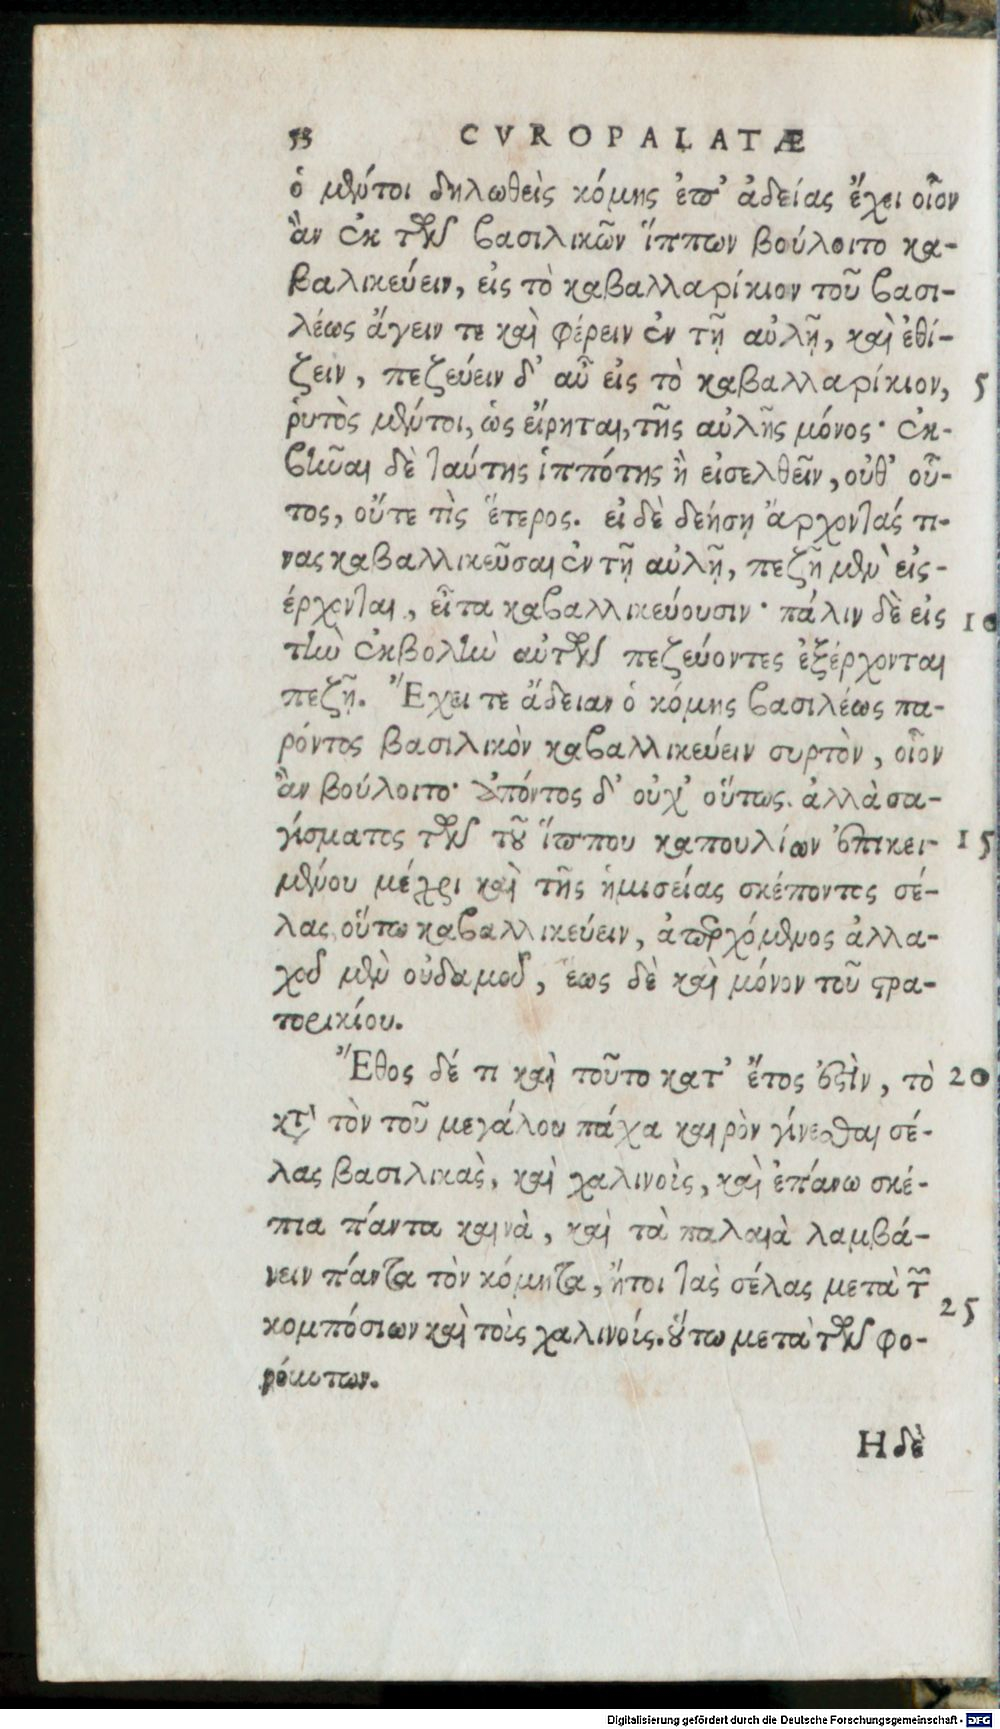 53 CVROPALATÆ
ὁ μέντοι δηλωθεὶς κόμης ἐπ᾽ ἀδείας ἔχει οἷον
ἂν ἐκ τῶν βασιλικῶν ἵππων βούλοιτο κα-
βαλικεύειν, εἰς τὸ καβαλλαρίκιον τοῦ βασι-
λέως ἄγειν τε καὶ φέρειν ἐν τῇ αὐλῇ, καὶ ἐθί-
ζειν, πεζεύειν δ᾽ αὖ εἰς τὸ καβαλλαρίκιον, 5
ῥυτὸς μέντοι, ὡς εἴρηται, τῆς αὐλῆς μόνος· ἐκ-
βῆναι δὲ ταύτης ἱππότης ἢ εἰσελθεῖν, οὐθ᾽ οὗ-
τος, οὔτε τὶς ἕτερος. εἰ δὲ δεήσῃ ἄρχοντάς τι-
νας καβαλλικεῦσαι ἐν τῇ αὐλῇ, πεζῇ μὲν εἰς-
έρχονται, εἶτα καβαλλικεύουσιν· πάλιν δὲ εἰς 10
τὴν ἐκβολὴν αὐτῶν πεζεύοντες ἐξέρχονται
πεζῇ. Ἔχει τε ἄδειαν ὁ κόμης βασιλέως πα-
ρόντος βασιλικὸν καβαλλικεύειν συρτὸν, οἷον
ἂν βούλοιτο· ἀπόντος δ᾽ οὐχ᾽ οὕτως. ἀλλὰ σα-
γίσματος τῶν τοῦ ἵππου καπουλίων ἐπικει- 15
μένου μέχρι καὶ τῆς ἡμισείας σκέποντος σέ-
λας οὕτω καβαλλικεύειν, ἀπερχόμενος ἀλλα-
χοῦ μὲν οὐδαμοῦ, ἕως δὲ καὶ μόνον τοῦ στρα-
τορικίου.
Ἔθος δέ τι καὶ τοῦτο κατ᾽ ἔτος ἐστὶν, τὸ 20
κατὰ τὸν τοῦ μεγάλου πάχα καιρὸν γίνεσθαι σέ-
λας βασιλικὰς, καὶ χαλινοὶς, καὶ ἐπάνω σκέ-
πια πάντα καινὰ, καὶ τὰ παλαιὰ λαμβά-
νειν πάντα τὸν κόμητα, ἤτοι τὰς σέλας μετὰ τῶν
κομπόσιων καὶ τοὶς χαλινοίς. οὕτω μετὰ τῶν φο- 25
Η δὲ